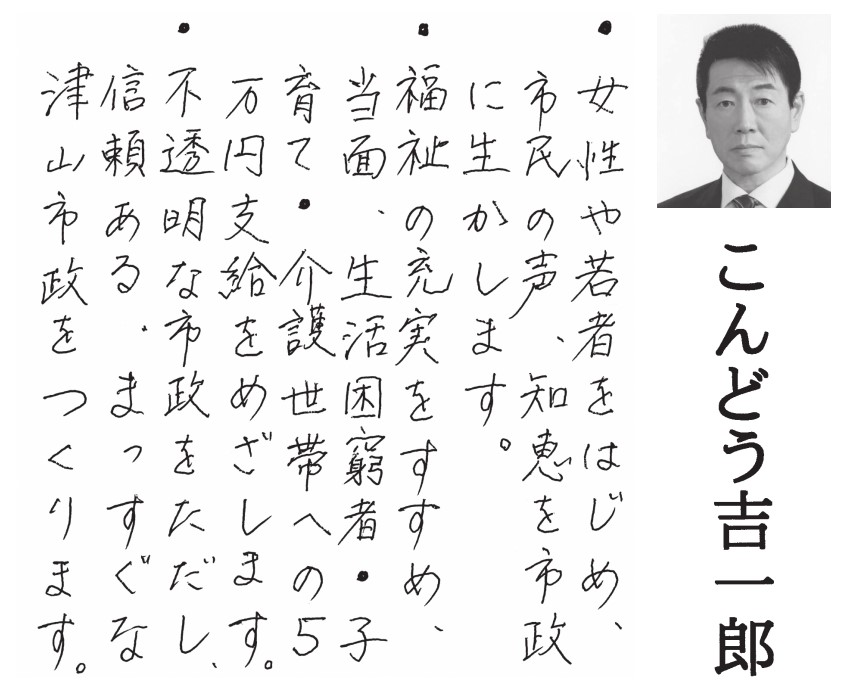 こんどう吉一郎
・女性や若者をはじめ、
市民の声、知恵を市政
に生かします。
・福祉の充実をすすめ、
当面、生活困窮者・子
育て・介護世帯への5
万円支給をめざします。
・不透明な市政をただし、
信頼ある、まっすぐな
津山市政をつくります。